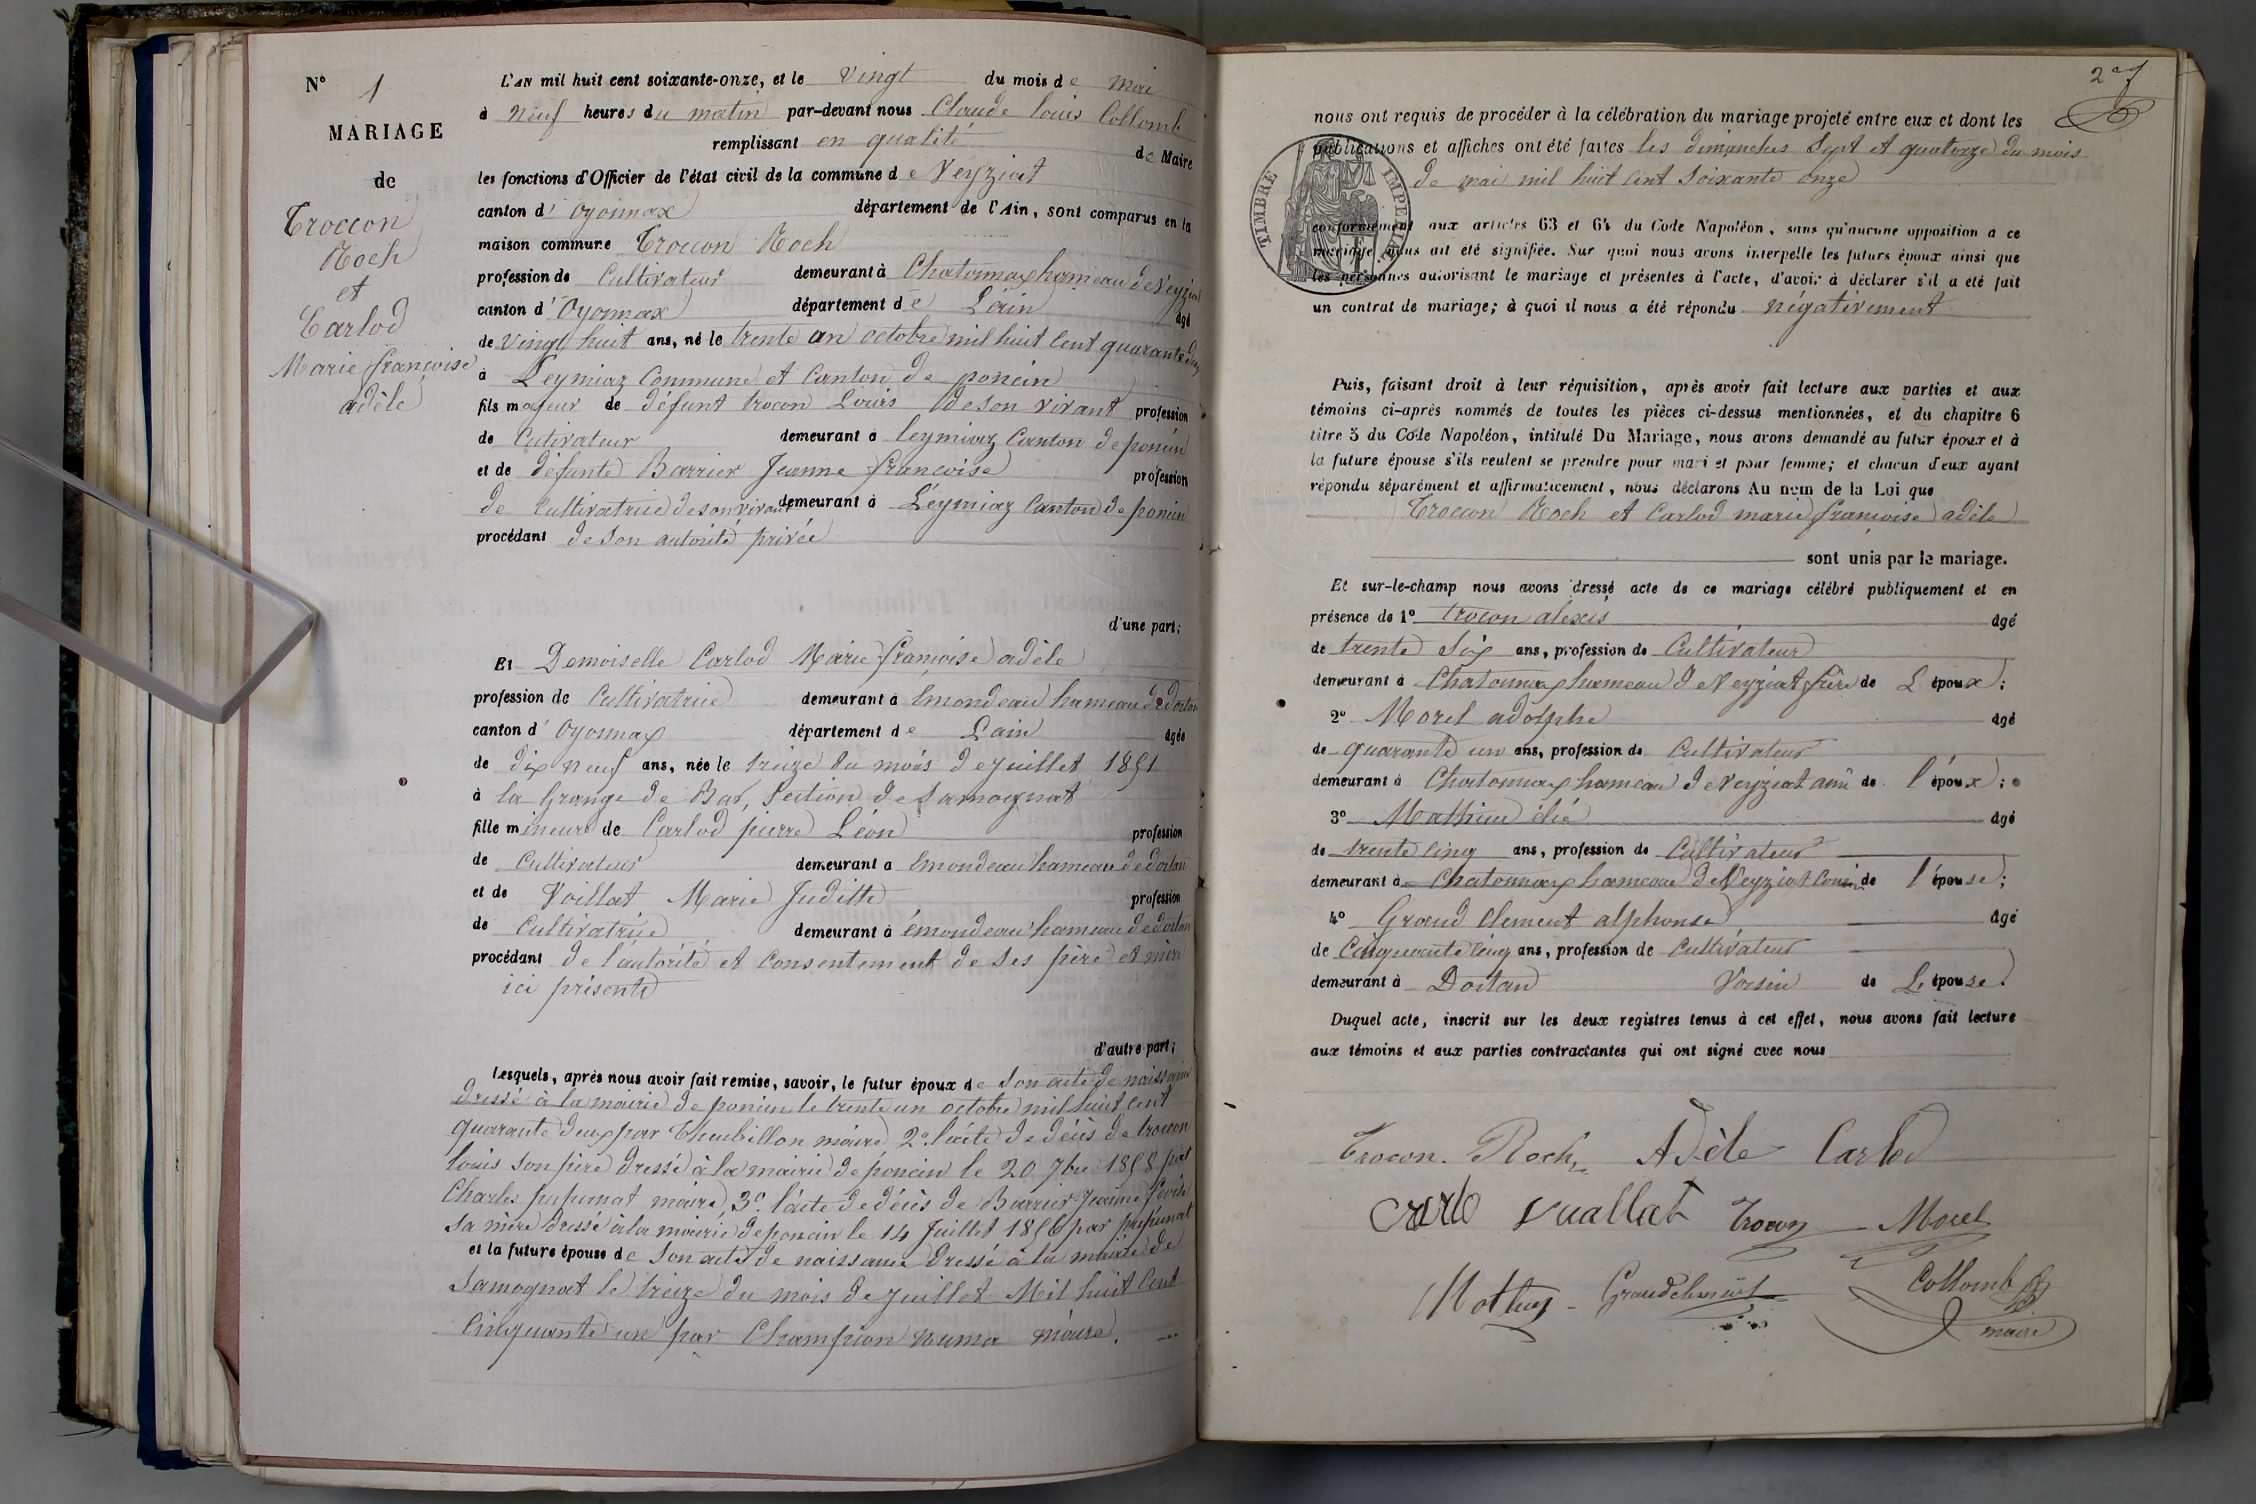 N° 1
MARIAGE
de
Troccon
Roch
et
Carlod
Marie françoise
adèle
L'AN mil huit cent soixante-onze, et le vingt du mois de mai
à neuf heures du matin par-devant nous Claude Louis Collomb
remplissant en qualité de Maire
les fonctions d'Officier de l'état civil de la commune de Veyziat
canton d' Oyonnax département de l'Ain, sont comparus en la
maison commune Troccon Roch
profession de Cultivateur demeurant à Chatonnax hameau de Veyziat
canton d' Oyonnax département de L'ain âgé
de vingt huit ans, né le trente un octobre mil huit cent quarante deux
à Leymiaz Commune et Canton de poncin
fils majeur de défunt trocon Louis de son vivant profession
de Cutivateur demeurant à leymiaz Canton de poncin
et de défunte Barrier Jeanne francoise profession
de Cultivatrice de son vivant demeurant à Léymiaz Canton de poncin
procédant de son autorité privée
d'une part;
Et Demoiselle Carlod Marie françoise adèle
profession de Cultivatrice demeurant à émondeau hameau de dortan
canton d' Oyonnax département de Lain âgée
de dix neuf ans, née le treize du mois de juillet 1851
à la Grange de Bas, Section de Samognat
fille mineure de Carlod pierre Léon profession
de Cultivateur demeurant a émondeau hameau de dortan
et de Voillat Marie Judith profession
de Cultivatrice demeurant à émondeau hameau de dortan
procédant de l'autorité et Consentement de ses père et mère
ici présents
d'autre part;
Lesquels, après nous avoir fait remise, savoir, le futur époux de son acte de naissance
dressé à la mairie de poncin le trente un octobre mil huit cent
quarante deux par Theubillon maire 2° l'acte de décès de trocon
louis son père dressé à la mairie de poncin le 20 7bre 1858 par
Charles maire, 3° l'acte de décès de Barrier Jeanne
sa mère dressé à la mairie de poncin le 14 Juillet 1856 par
et la future épouse de son acte de naissance dressé à la mairie de
Samognat le treize du mois de juillet Mil huit Cent
Cinquante un par Champion numa maire.
2e f
nous ont requis de procéder à la célébration du mariage projeté entre eux et dont les
publications et affiches ont été faites les dimanches Sept et quatorze du mois
de mai mil huit Cent Soixante onze
TIMBRE IMPERIAL
conformément aux articles 63 et 64 du Code Napoléon, sans qu'aucune opposition à ce
mariage nous ait été signifiée. Sur quoi nous avons interpellé les futurs époux ainsi que
les personnes autorisant le mariage et présentes à l'acte, d'avoir à déclarer s'il a été fait
un contrat de mariage; à quoi il nous a été répondu négativement
Puis, faisant droit à leur réquisition, après avoir fait lecture aux parties et aux
témoins ci-après nommés de toutes les pièces ci-dessus mentionnées, et du chapitre 6
titre 5 du Code Napoléon, intitulé Du Mariage, nous avons demandé au futur époux et à
la future épouse s'ils veulent se prendre pour mari et pour femme; et chacun d'eux ayant
répondu séparément et affirmativement, nous déclarons Au nom de la Loi que
Troccon Roch et Carlod marie françoise adèle
sont unis par le mariage.
Et sur-le-champ nous avons dressé acte de ce mariage célébré publiquement et en
présence de 1° Trocon alexis âgé
de trente six ans, profession de Cultivateur
demeurant à Chatonnax hameau de Veyziat frère de L époux;
2° Morel adolphe âgé
de quarante un ans, profession de Cultivateur
demeurant à Chatonnax hameau de Veyziat ami de l'époux;
3° Mathieu élie âgé
de trente cinq ans, profession de Cultivateur
demeurant à Chatonnax hameau de Veyziat Cousin de l'épouse;
4° Grand clement alphonse âgé
de Cinquante cinq ans, profession de Cultivateur
demeurant à Dortan Voisin de L'épouse.
Duquel acte, inscrit sur les deux registres tenus à cet effet, nous avons fait lecture
aux témoins et aux parties contractantes qui ont signé avec nous
Trocon. Roch Adèle Carlod
vuallat Trocon Morel
Mathieu Grandclement Collomb
maire